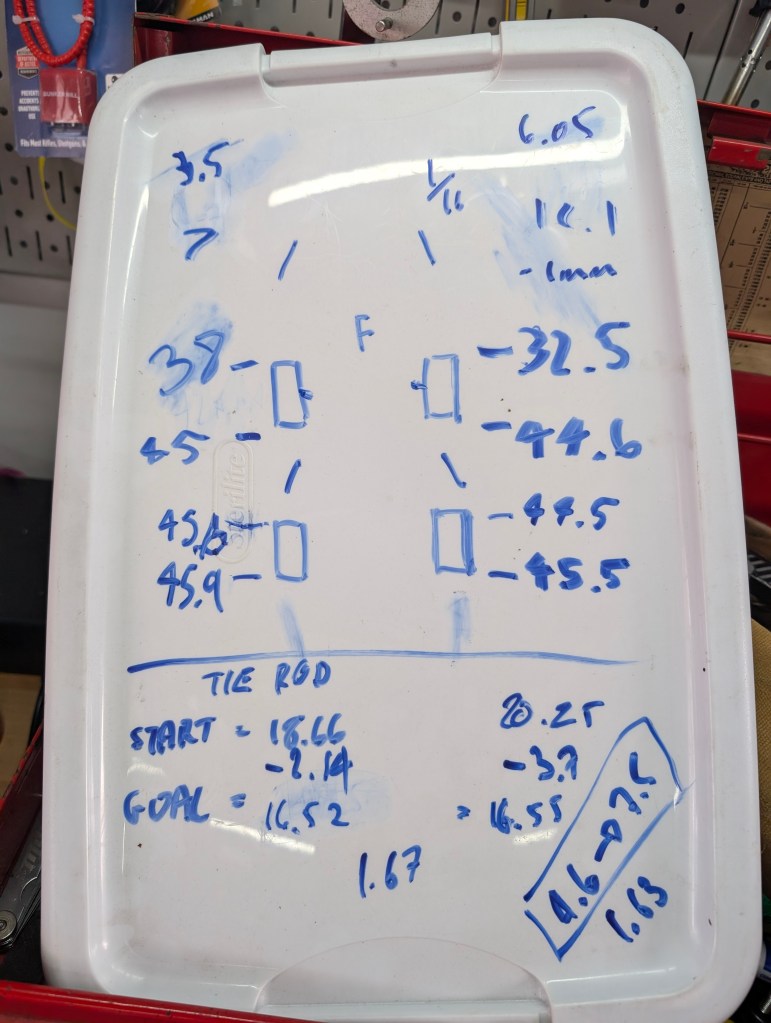 3.5
6.05
7
1/16
16.1
-1mm
F
38 -
- 32.5
45 -
- 44.6
45.6 -
- 44.5
45.9 -
- 45.5
sterilite
TIE ROD
START = 18.66
-2.14
GOAL = 16.52
20.25
-3.7
= 16.55
1.67
1.63
PREVENT
ACCIDENTS
UNAUTHORIZED
USE
Fits Most Rifles, Shotguns, &